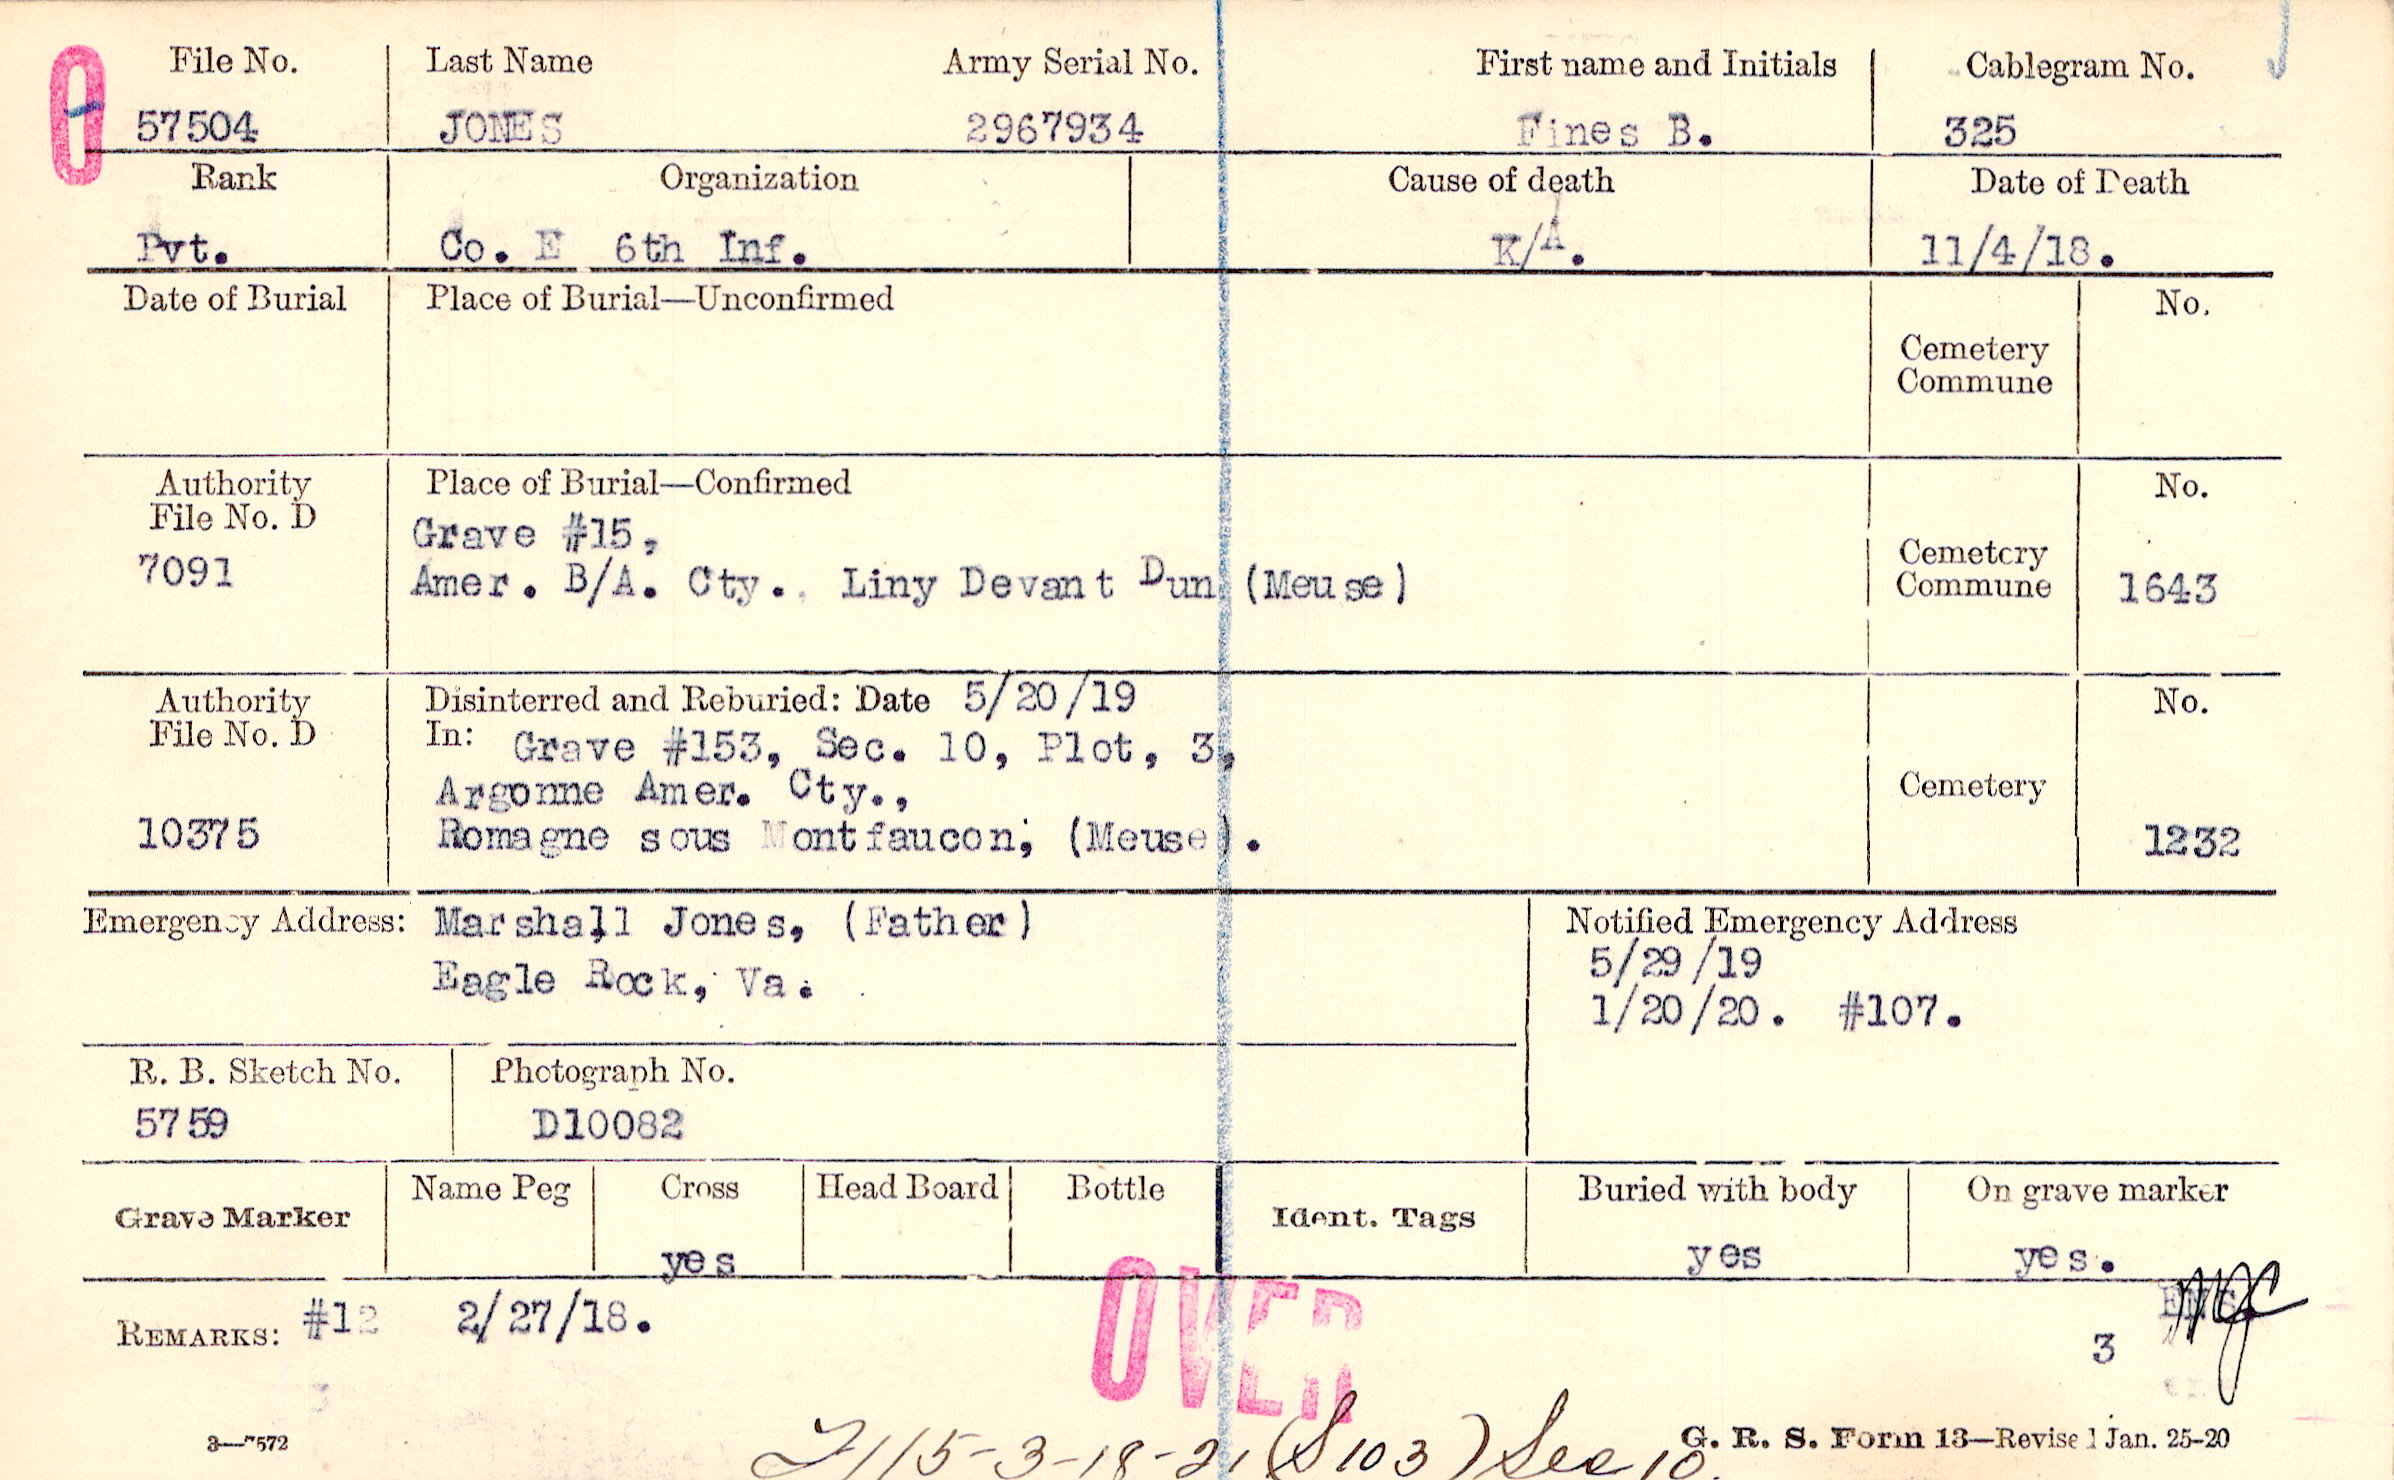 File No. Last Name Army Serial No. First name and Initials Cablegram No.
57504 JONES 2967934 Fines B. 325
Rank Organization Cause of death Date of Death
Pvt. Co. E 6th Inf. K/A. 11/4/18.
Date of Burial Place of Burial—Unconfirmed No.
Cemetery
Commune
Authority Place of Burial—Confirmed No.
File No. D
Grave #15,
7091 Amer. B/A. Cty. Liny Devant Dun (Meuse) Cemetery
Commune 1643
Authority Disinterred and Reburied: Date 5/20/19 No.
File No. D In: Grave #153, Sec. 10, Plot, 3,
Argonne Amer. Cty., Cemetery
10375 Romagne sous Montfaucon, (Meuse). 1232
Emergency Address: Marshall Jones, (Father) Notified Emergency Address
5/29/19
Eagle Rock, Va. 1/20/20. #107.
R. B. Sketch No. Photograph No.
5759 D10082
Grave Marker Name Peg Cross Head Board Bottle Ident. Tags Buried with body On grave marker
yes yes yes.
REMARKS: #12 2/27/18.
OVER
3
3
3—7572 G. R. S. Form 13—Revised Jan. 25-20
115-3-18-21 (S103) Sec 10.